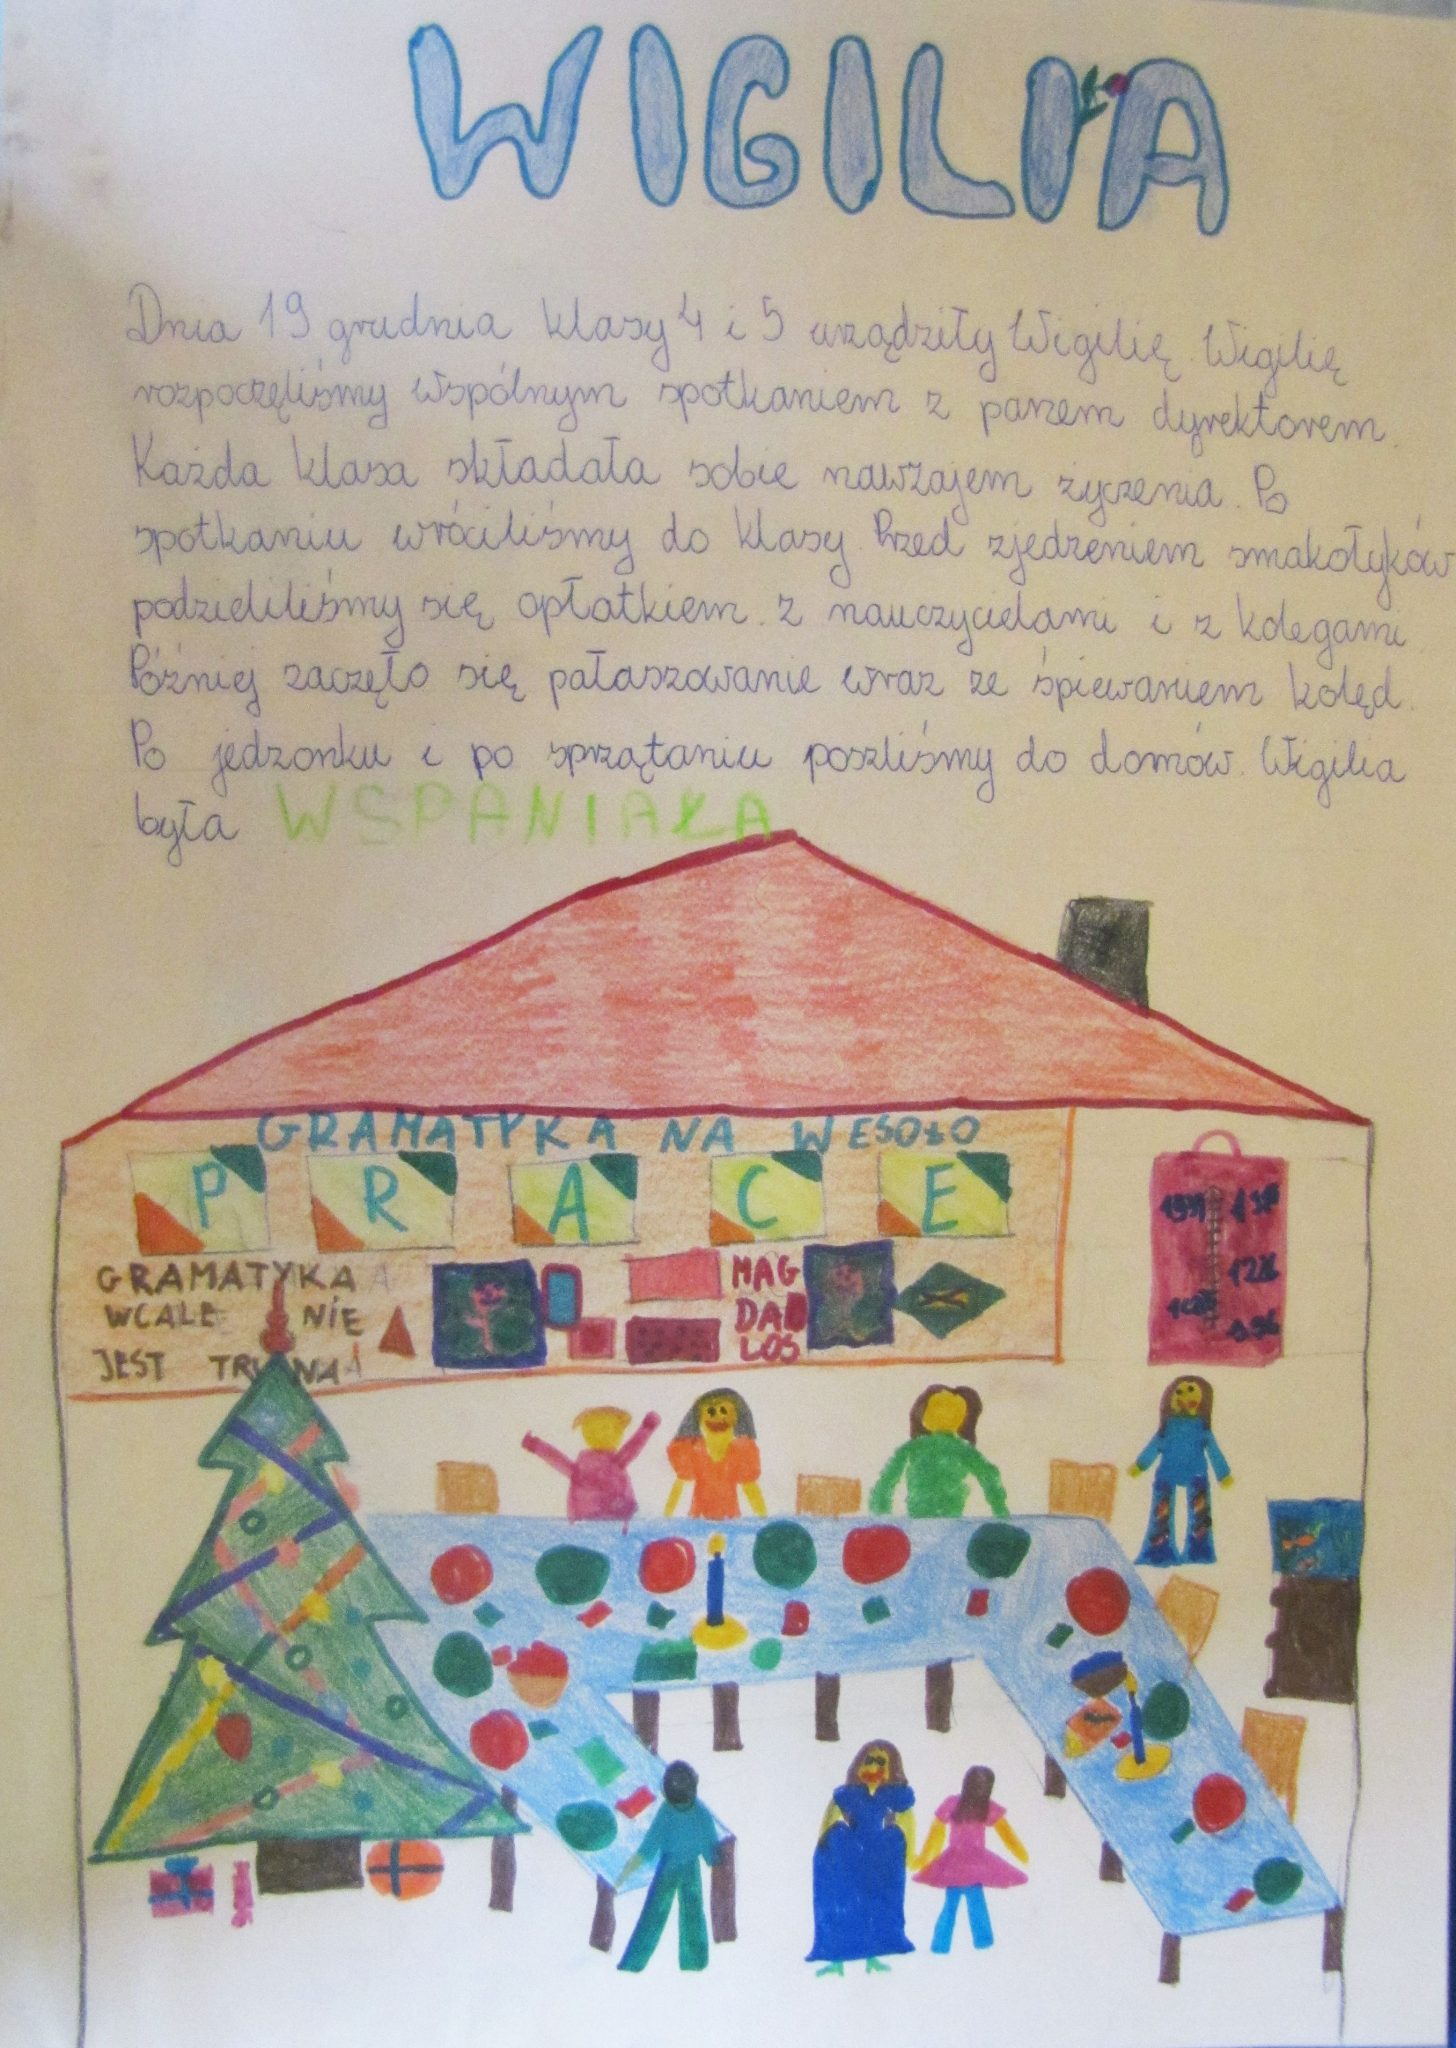 WIGILIA
Dnia 19 grudnia klasy 4 i 5 urządziły Wigilię. Wigilię
rozpoczęliśmy wspólnym spotkaniem z panem dyrektorem.
Każda klasa składała sobie nawzajem życzenia. Po
spotkaniu wróciliśmy do klasy. Przed zjedzeniem smakołyków
podzieliliśmy się opłatkiem z nauczycielami i z kolegami
Później zaczęło się pałaszowanie wraz ze śpiewaniem kolęd.
Po jedzonku i po sprzątaniu poszliśmy do domów. Wigilia
była WSPANIAŁA
GRAMATYKA NA WESOŁO
P R A C E
GRAMATYKA
WCALE NIE
JEST TRUDNA
MAG
DA
LOS